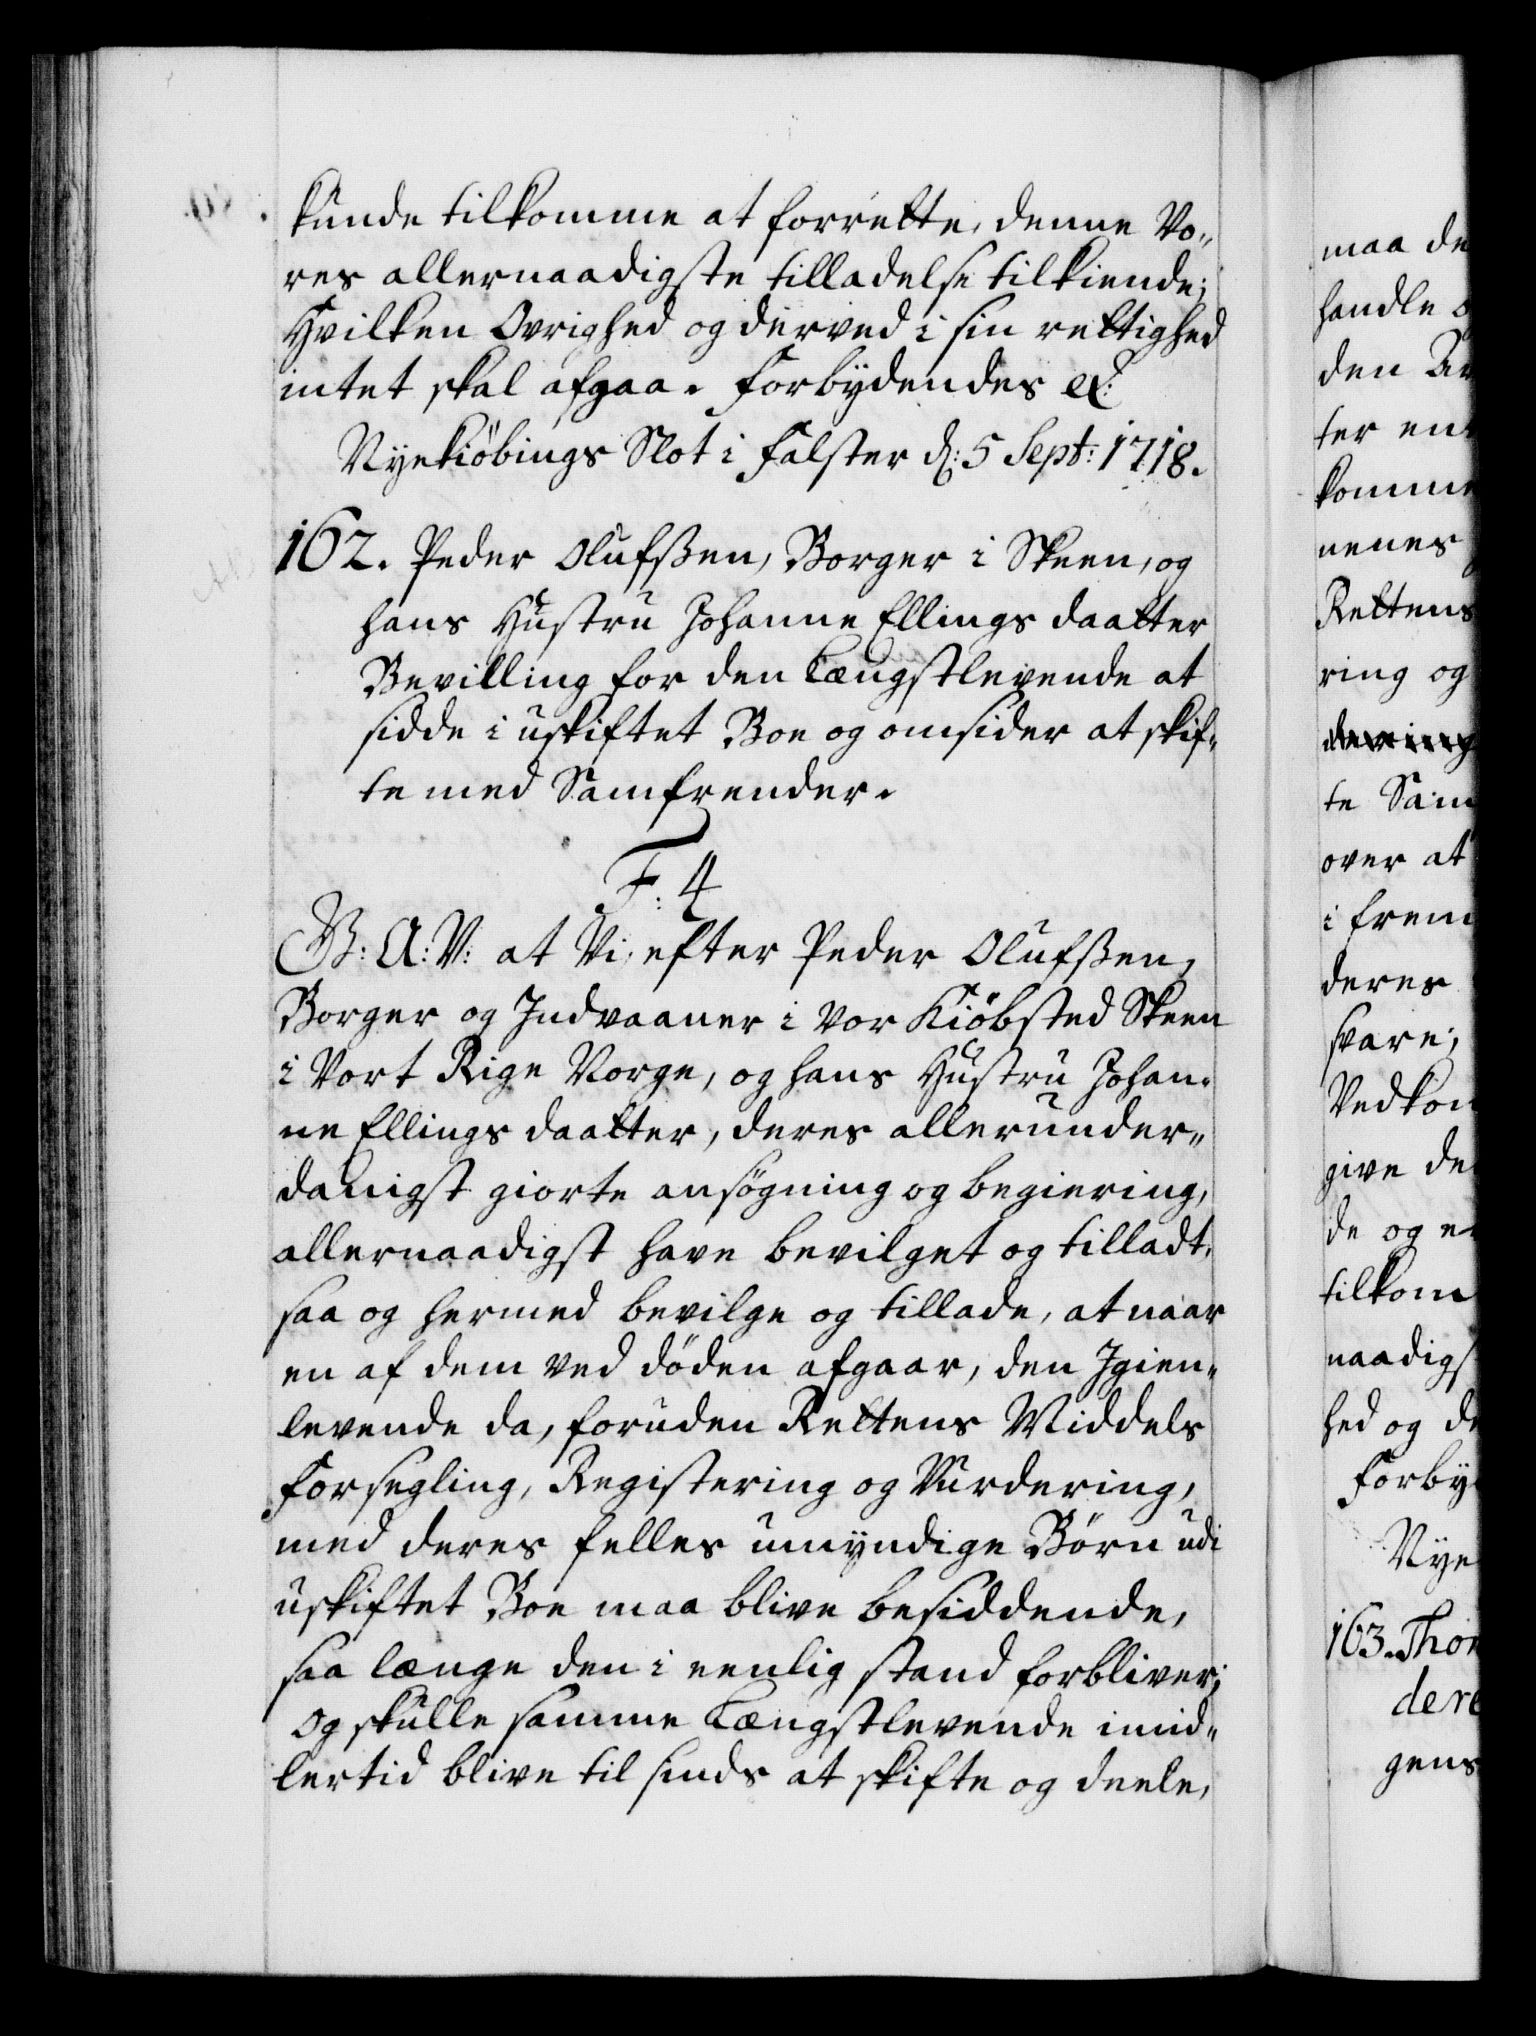 kunde tilkomme at forrette, denne Vo„
res allernaadigste tilladelse tilkiende;
Hvilken Øvrighed og derved i sin rettighed
intet skal afgaa. Forbydendes etc:
Nyekiöbings Slot i Falster d: 5 Sept: 1718.
162. Peder Olufsøen, Borger i Skeen, og
hans Hustru Johanne Ellings daatter
Bevilling for den Længstlevende at
sidde i uskiftet Boe og omsider at skif„
te med Samfrender.
F: 4
G: A: V: at Vi, efter Peder Olufsøen,
Borger og Indvaaner i vor Kiöbsted Skeen
i Vort Rige Norge, og hans Hustru Johan„
ne Ellings daatter, deres allerunder„
danigst giorte ansögning og begiering,
allernaadigst have bevilget og tilladt,
saa og hermed bevilge og tillade, at naar
en af dem ved döden afgaar, den Igien„
levende da, foruden Rettens Middels
Forsegling, Registering og Vurdering,
med deres felles umyndige Börn udi
uskiftet Boe maa blive besiddende,
saa længe den i eenlig stand forbliver;
Og skulle samme Længstlevende imid„
lertid blive til sinds at skifte og deele,
maa de
handle
den
ter
komme
nenes
Rettens
ring og
te Sam
over at
i frem
deres
svare;
Vedkom
give de
de og
tilkom
naadigs
hed og de
Forby
Nye
163. Thom
dere
gens